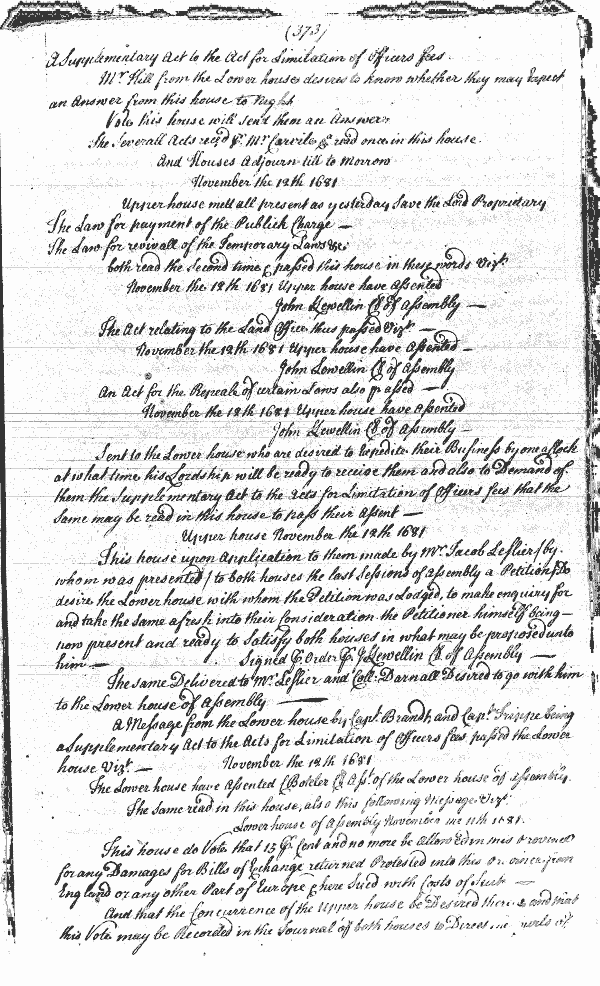 (373)
A Supplementary Act to the Act for Limitation of Officers fees.
Mr. Hill from the Lower houses desires to know whether they may Expect
an Answer from this house to Night
Vote this house will send them an Answer
The Severall Acts rec'd P. Mr. Carvile & read once in this house.
And Houses Adjourn till to Morrow
November the 12th 1681
Upper house mett all present as yesterday Save the Lord Proprietary
The Law for payment of the Publick Charge —
The Law for revivall of the Temporary Laws &c.
both read the Second time & passed this house in these words Vizt.
November the 12th 1681 Upper house have Assented
John Llewellin Cl. of Assembly —
The Act relating to the Land Office thus passed Vizt. —
November the 12th 1681 Upper house have Assented —
John Lewellin Cl. of Assembly
An Act for the Repeale of certain Laws also passed —
November the 12th 1681 Upper house have Assented
John Llewellin Cl. of Assembly —
Sent to the Lower house who are desired to Expedite their Business by one a Clock
at what time his Lordship will be ready to receive them and also to Demand of
them the Supplementary Act to the Acts for Limitation of Officers fees that the
Same may be read in this house to pass their Assent —
Upper house November the 12th 1681
This house upon Application to them made by Mr. Jacob Leslier (by
whom was presented) to both houses the last Sessions of Assembly a Petition) Do
desire the Lower house with whom the Petition was Lodged, to make enquiry for
and take the same afresh into their Consideration the Petitioner himself being —
now present and ready to Satisfy both houses in what may be proposed unto
him — Signed P. Order P. J. Llewellin Cl. of Assembly —
The same Delivered to Mr. Leslier and Coll. Darnall Desired to go with him
to the Lower house of Assembly —
A Message from the Lower house by Capt. Brandt, and Capt. Trippe being
a Supplementary Act to the Acts for Limitation of Officers fees passed the Lower
house Vizt. — November the 12th 1681
The Lower house have Assented C Boteler Cl. Asst. of the Lower house of Assembly.
The same read in this house, also this following Message Vizt.
Lower house of Assembly November the 11th 1681.
This house do Vote that 15 P. Cent and no more be Allowed in this Province
for any Damages for Bills of Exchange returned Protested into this Province from
England or any other Part of Europe & here Sued with Costs of Suit —
And that the Concurrence of the Upper house be Desired therein and that
this Vote may be Recorded in the Journal of both houses to Direct of